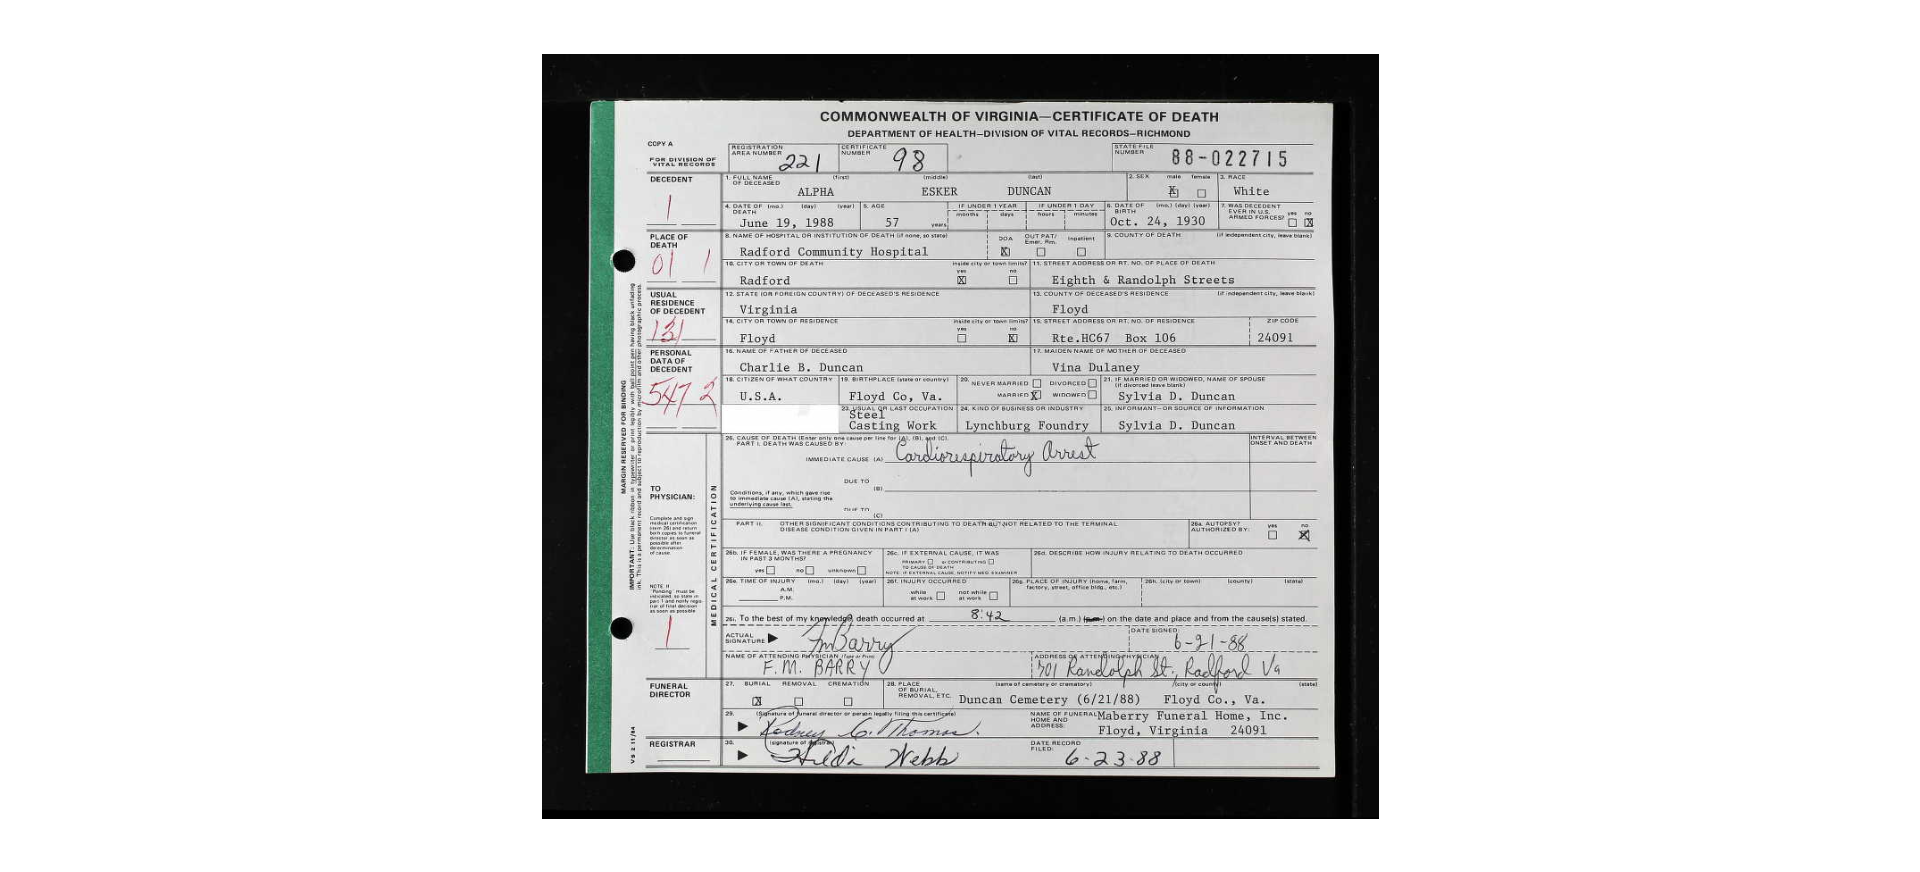 COMMONWEALTH OF VIRGINIA—CERTIFICATE OF DEATH
DEPARTMENT OF HEALTH—DIVISION OF VITAL RECORDS—RICHMOND
COPY A
FOR DIVISION OF VITAL RECORDS
REGISTRATION AREA NUMBER 221
CERTIFICATE NUMBER 98
STATE FILE NUMBER 88-022715
DECEDENT
1
1. FULL NAME OF DECEASED (first) (middle) (last)
ALPHA ESKER DUNCAN
2. SEX male female
X
3. RACE
White
4. DATE OF DEATH (mo.) (day) (year)
June 19, 1988
5. AGE
57 years
IF UNDER 1 YEAR months days
IF UNDER 1 DAY hours minutes
6. DATE OF BIRTH (mo.) (day) (year)
Oct. 24, 1930
7. WAS DECEDENT EVER IN U.S. ARMED FORCES? yes no
X
PLACE OF DEATH
01 1
8. NAME OF HOSPITAL OR INSTITUTION OF DEATH (if none, so state)
Radford Community Hospital
DOA OUT PAT/ Emer. Rm. Inpatient
X
9. COUNTY OF DEATH (if independent city, leave blank)
10. CITY OR TOWN OF DEATH
Radford
inside city or town limits? yes no
X
11. STREET ADDRESS OR RT. NO. OF PLACE OF DEATH
Eighth & Randolph Streets
USUAL RESIDENCE OF DECEDENT
131
12. STATE (OR FOREIGN COUNTRY) OF DECEASED'S RESIDENCE
Virginia
13. COUNTY OF DECEASED'S RESIDENCE (if independent city, leave blank)
Floyd
14. CITY OR TOWN OF RESIDENCE
Floyd
inside city or town limits? yes no
X
15. STREET ADDRESS OR RT. NO. OF RESIDENCE
Rte.HC67 Box 106
ZIP CODE
24091
PERSONAL DATA OF DECEDENT
547 2
16. NAME OF FATHER OF DECEASED
Charlie B. Duncan
17. MAIDEN NAME OF MOTHER OF DECEASED
Vina Dulaney
18. CITIZEN OF WHAT COUNTRY
U.S.A.
19. BIRTHPLACE (state or country)
Floyd Co, Va.
20. NEVER MARRIED DIVORCED
MARRIED X WIDOWED
21. IF MARRIED OR WIDOWED, NAME OF SPOUSE (if divorced leave blank)
Sylvia D. Duncan
23. USUAL OR LAST OCCUPATION
Steel
Casting Work
24. KIND OF BUSINESS OR INDUSTRY
Lynchburg Foundry
25. INFORMANT—OR SOURCE OF INFORMATION
Sylvia D. Duncan
MARGIN RESERVED FOR BINDING
MEDICAL CERTIFICATION
26. CAUSE OF DEATH (Enter only one cause per line for (A), (B), and (C).
PART I. DEATH WAS CAUSED BY:
INTERVAL BETWEEN ONSET AND DEATH
IMMEDIATE CAUSE (A) Cardiorespiratory Arrest
DUE TO
(B)
Conditions, if any, which gave rise to immediate cause (A), stating the underlying cause last.
DUE TO
(C)
TO PHYSICIAN:
Complete and sign medical certification (item 26) and return both copies to funeral director as soon as possible after determination of cause.
PART II. OTHER SIGNIFICANT CONDITIONS CONTRIBUTING TO DEATH BUT NOT RELATED TO THE TERMINAL DISEASE CONDITION GIVEN IN PART I (A)
26a. AUTOPSY? AUTHORIZED BY: yes no
X
26b. IF FEMALE, WAS THERE A PREGNANCY IN PAST 3 MONTHS?
yes no unknown
26c. IF EXTERNAL CAUSE, IT WAS
PRIMARY or CONTRIBUTING
TO CAUSE OF DEATH
NOTE: IF EXTERNAL CAUSE, NOTIFY MED EXAMINER
26d. DESCRIBE HOW INJURY RELATING TO DEATH OCCURRED
26e. TIME OF INJURY (mo.) (day) (year)
A.M.
P.M.
26f. INJURY OCCURRED
while at work not while at work
26g. PLACE OF INJURY (home, farm, factory, street, office bldg., etc.)
26h. (city or town) (county) (state)
1
26i. To the best of my knowledge, death occurred at 8:42 (a.m.) on the date and place and from the cause(s) stated.
ACTUAL SIGNATURE FmBarry
DATE SIGNED
6-21-88
NAME OF ATTENDING PHYSICIAN (Type or Print)
F.M. BARRY
ADDRESS OF ATTENDING PHYSICIAN
701 Randolph St., Radford Va
FUNERAL DIRECTOR
27. BURIAL REMOVAL CREMATION
X
28. PLACE OF BURIAL, REMOVAL, ETC. (name of cemetery or crematory) (city or county) (state)
Duncan Cemetery (6/21/88) Floyd Co., Va.
29. (Signature of funeral director or person legally filing this certificate)
Rodney C. Thomas.
NAME OF FUNERAL HOME AND ADDRESS:
Maberry Funeral Home, Inc.
Floyd, Virginia 24091
REGISTRAR
30. (signature of registrar)
Hilda Webb
DATE RECORD FILED:
6-23-88
VS 2 11/84